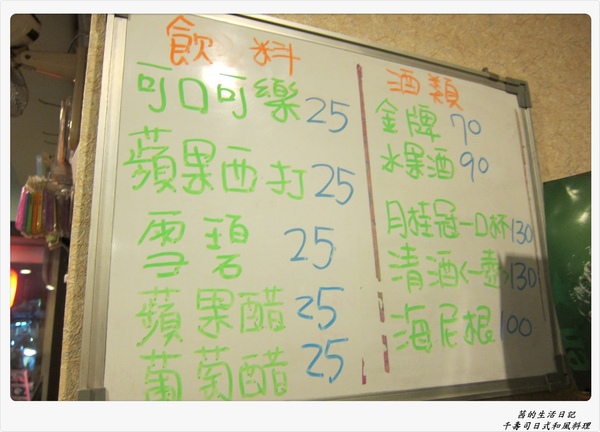 飲料
可口可樂 25
蘋果西打 25
雪碧 25
蘋果醋 25
葡萄醋 25
酒類
金牌 70
水果酒 90
月桂冠一口杯 130
清酒(一壺) 130
海尼根 100
莒的生活日記
千壽司日式和風料理